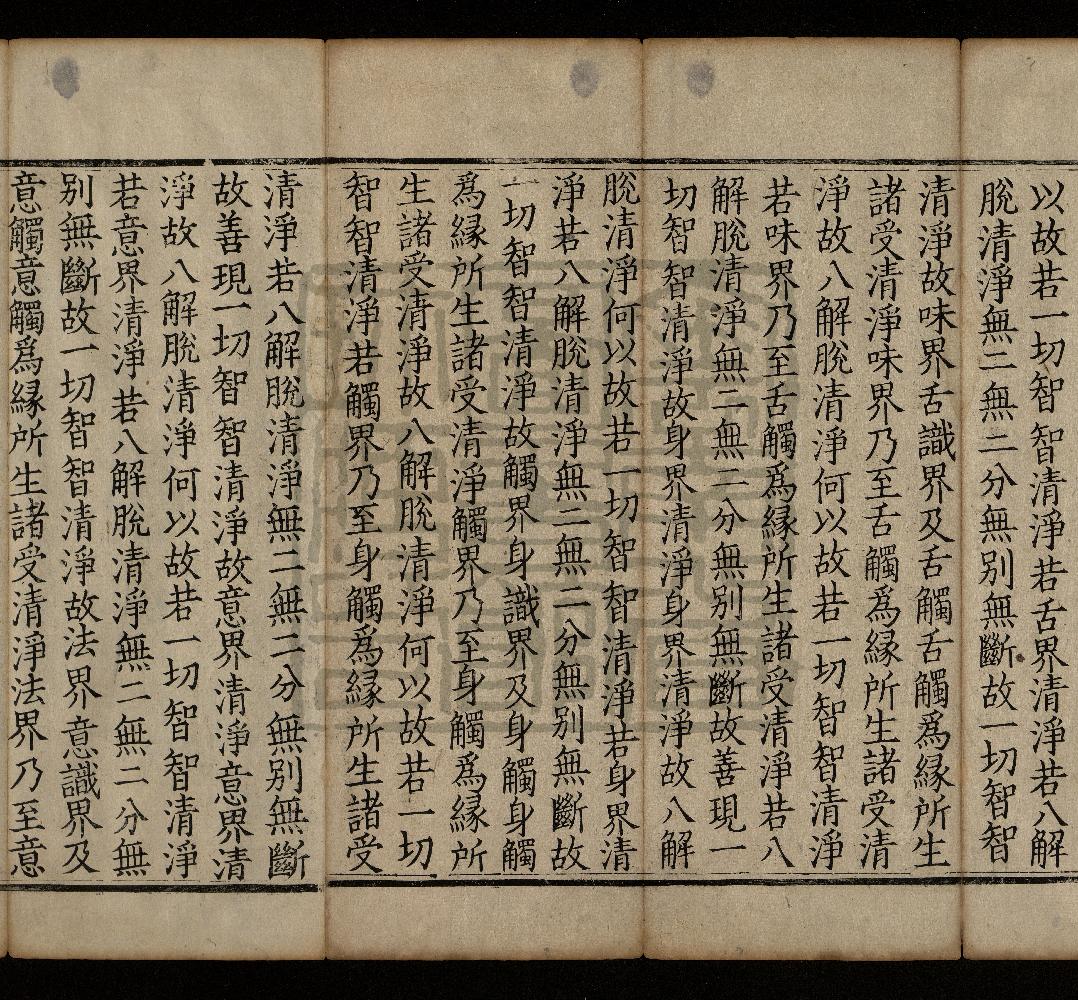 以故若一切智智清淨若舌界清淨若八解
脫清淨無二無二分無別無斷故一切智智
清淨故味界舌識界及舌觸舌觸爲緣所生
諸受清淨味界乃至舌觸爲緣所生諸受清
淨故八解脫清淨何以故若一切智智清淨
若味界乃至舌觸爲緣所生諸受清淨若八
解脫清淨無二無二分無別無斷故善現一
切智智清淨故身界清淨身界清淨故八解
脫清淨何以故若一切智智清淨若身界清
淨若八解脫清淨無二無二分無別無斷故
一切智智清淨故觸界身識界及身觸身觸
爲緣所生諸受清淨觸界乃至身觸爲緣所
生諸受清淨故八解脫清淨何以故若一切
智智清淨若觸界乃至身觸爲緣所生諸受
清淨若八解脫清淨無二無二分無別無斷
故善現一切智智清淨故意界清淨意界清
淨故八解脫清淨何以故若一切智智清淨
若意界清淨若八解脫清淨無二無二分無
別無斷故一切智智清淨故法界意識界及
意觸意觸爲緣所生諸受清淨法界乃至意